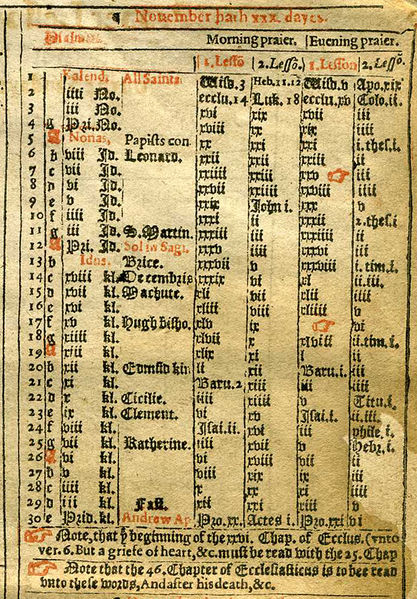 Nouember hath xxx. dayes.
Psalmes. Morning praier. Euening praier.
1. Lessō 2. Lessō. 1. Lesson 2. Lessō.
1 Kalend. All Saints Wisd. 3 Heb. 11.12 Wisd. v Apo. xix
2 iiii No. ecclu. 14 Luk. 18 ecclu. xv Colo. ii.
3 iii No. xvi xix xvii iii
4 g Pri. No. xviii xx xix iiii
5 Nonas, Papists con xx xxi xxi i. thes. i.
6 b viii Id. Leonard. xxii xxii xxiii ii
7 c vii Id. xxiiii xxiii iii
8 d vi Id. xxvii xxiiii xxviii iiii
9 e v Id. xxix Iohn i. xxx v
10 f iiii Id. xxxi ii xxxii 2. thes. i
11 g iii Id. S. Martin. xxxiii iii xxxiiii ii
12 Pri. Id. Sol in Sagi. xxxv iiii xxxvi iii
13 b Idus. Brice. xxxvii v xxxviii i. tim. i
14 c xviii kl. Decembris xxxix vi xl ii.iii.
15 d xvii kl. Machute. xli vii xlii iiii
16 e xvi kl. xliii viii xliiii v
17 f xv kl. Hugh bisho. xlv ix vi
18 g xiiii kl. xlvii x xlviii ii. tim. i.
19 xiii kl. xlix xi l ii
20 b xii kl. Edmūd kin li xii Baru. i. iii
21 c xi kl. Baru. 2 xiii iii iiii
22 d x kl. Cicilie. iiii xiiii v Titu. i.
23 e ix kl. Clement. vi xv Isai. i. ii.iii.
24 f viii kl. Isai. ii xvi iii phile. i.
25 g vii kl. Katherine. iiii xvii v Hebr. i.
26 vi kl. vi xviii vii ii
27 b v kl. viii xix ix iii
28 c iiii kl. x xx xi iiii
29 d iii kl. Fast. xii xxi xiii v
30 e Prid. kl. Andrew Ap Pro. xx. Actes i. Pro. xxi vi
Note, that ye beginning of the xxvi. Chap. of Ecclus. (vnto
ver. 6. But a griefe of heart, &c. must be read with the 25. Chap
Note that the 46. Chapter of Ecclesiasticus is to bee read
vnto these words, And after his death, &c.